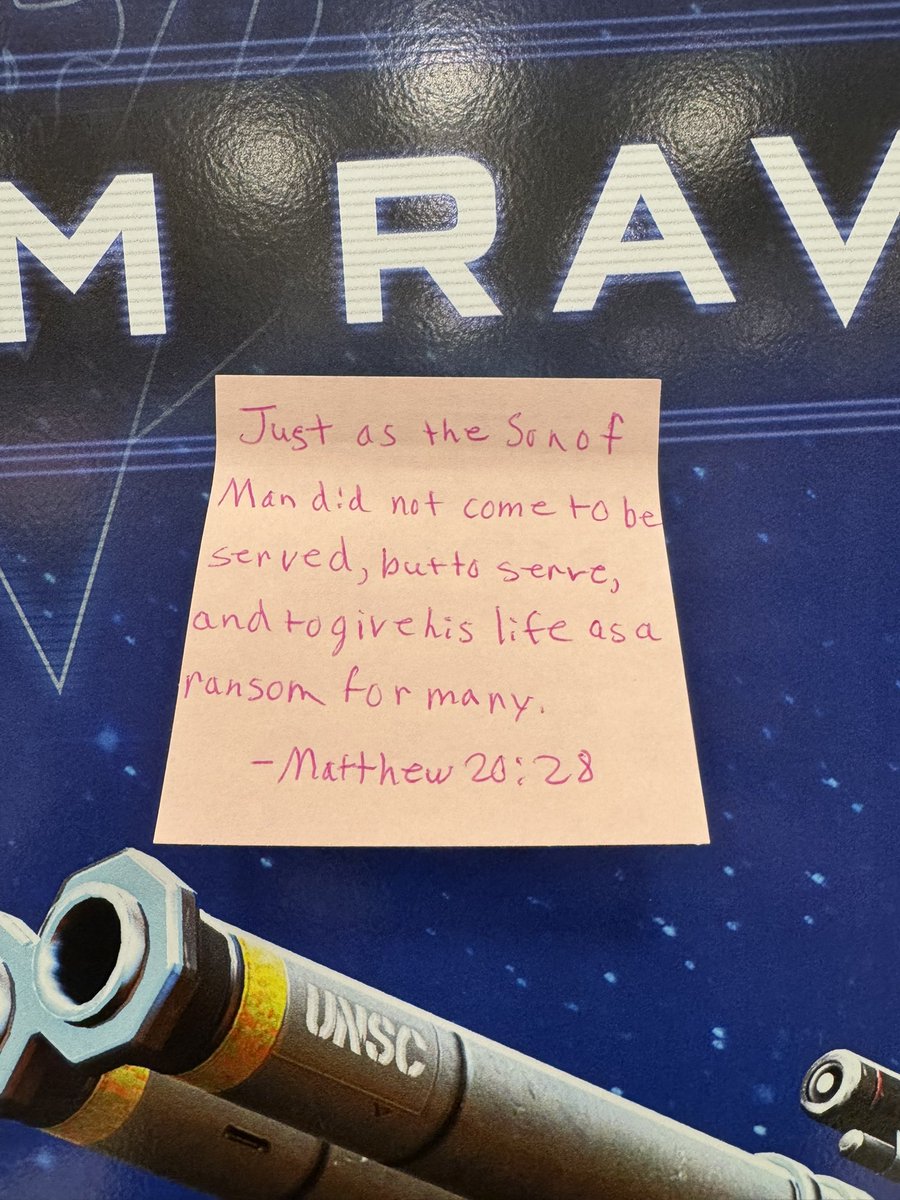 M RAV
Just as the Son of
Man did not come to be
served, but to serve,
and to give his life as a
ransom for many.
-Matthew 20:28
UNSC